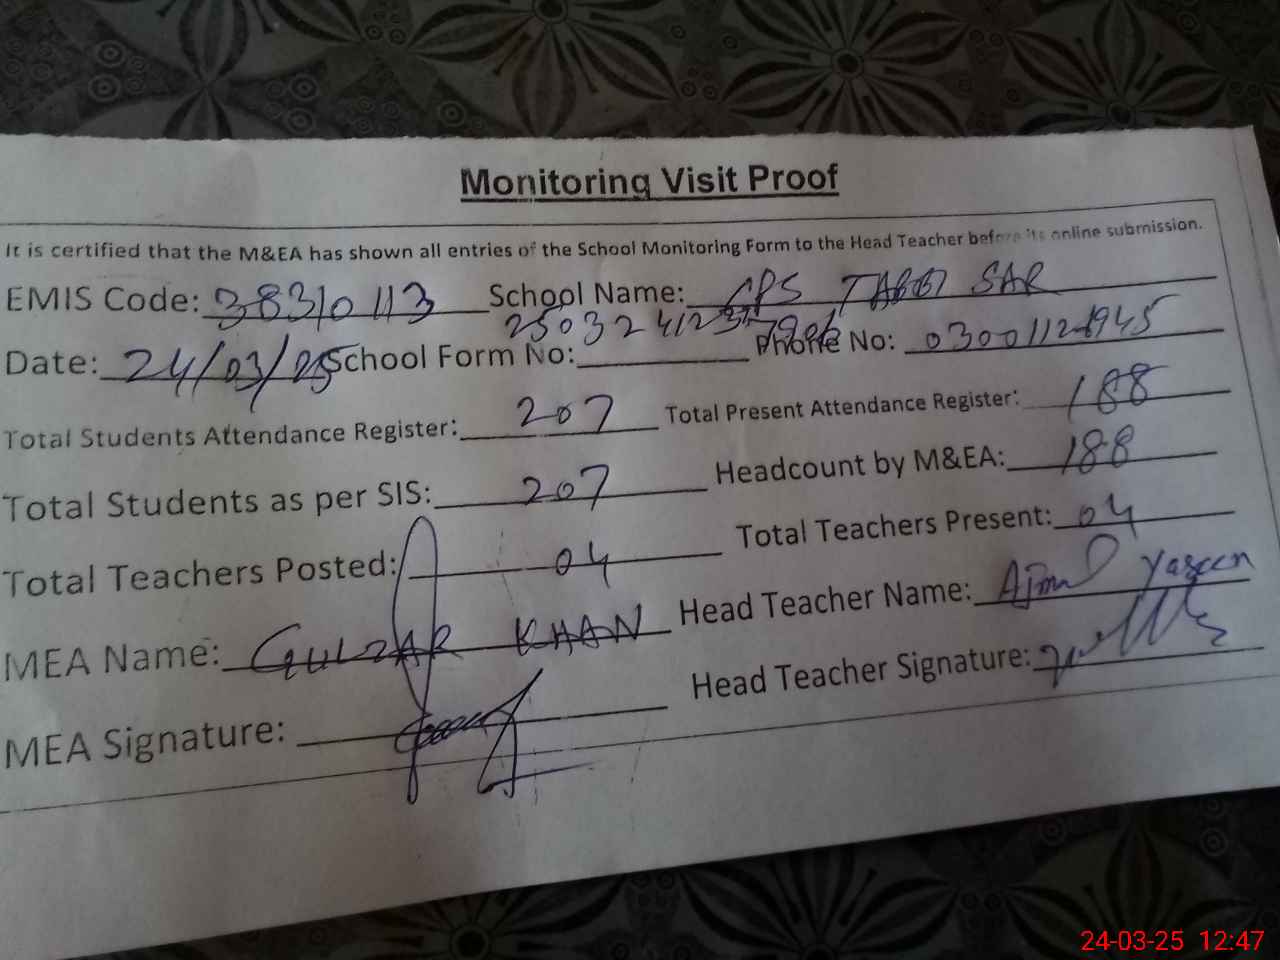 Monitoring Visit Proof
It is certified that the M&EA has shown all entries of the School Monitoring Form to the Head Teacher before its online submission.
EMIS Code: 38310113 School Name: GPS TABBI SAR
Date: 24/03/25 School Form No: 2503241237 Phone No: 03001121945
Total Students Attendance Register: 207 Total Present Attendance Register: 188
Total Students as per SIS: 207 Headcount by M&EA: 188
Total Teachers Posted: 04 Total Teachers Present: 04
MEA Name: GULZAR KHAN Head Teacher Name: Ajmal Yaseen
MEA Signature: Head Teacher Signature:
24-03-25 12:47